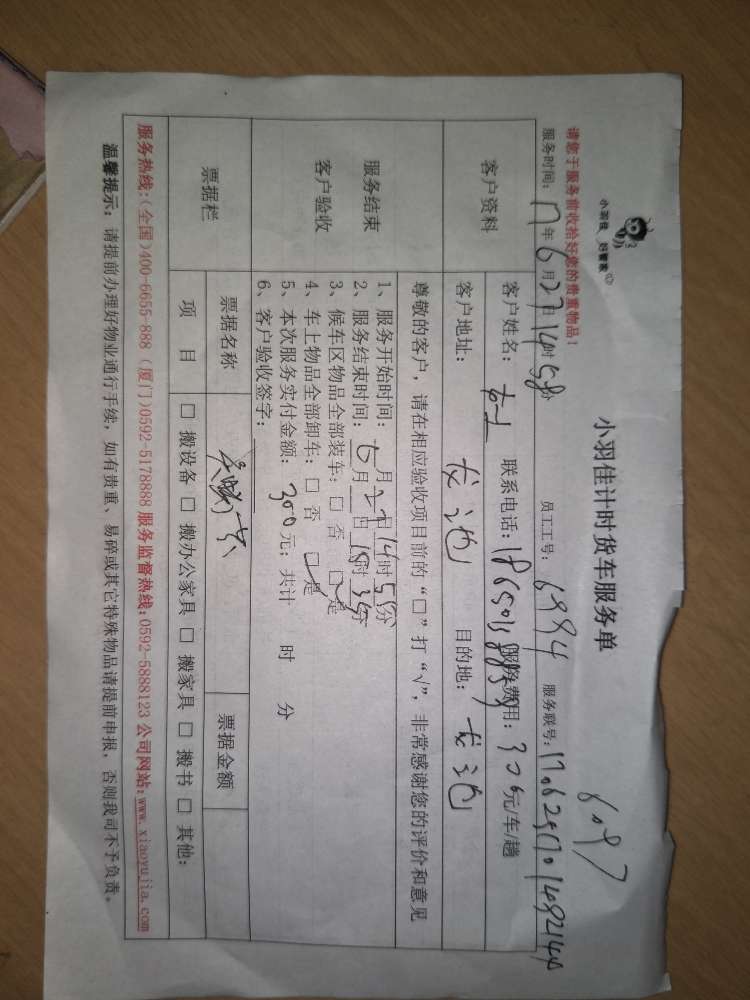 6097
小羽佳 好管家
小羽佳计时货车服务单
请您于服务前收拾好您的贵重物品！
服务时间：17年6月27日14时58分 员工工号：6994 服务联号：
客户资料
客户姓名： 联系电话： 服务费用： 元/车/趟
客户地址：龙池 目的地：龙池
尊敬的客户，请在相应验收项目前的“□”打“√”，非常感谢您的评价和意见
服务结束
客户验收
1、服务开始时间：6月27日14时58分
2、服务结束时间： 月 日 时 分
3、候车区物品全部装车：□ 否 □ 是
4、车上物品全部卸车：□ 否 □ 是
5、本次服务实付金额：300元；共计 时 分
6、客户验收签字：
票据栏
票据名称 票据金额
项 目 □ 搬设备 □ 搬办公家具 □ 搬家具 □ 搬书 □ 其他：
服务热线：(全国)400-6655-888 (厦门)0592-5178888 服务监督热线：0592-5888123 公司网站：www.xiaoyujia.com
温馨提示：请提前办理好物业通行手续，如有贵重、易碎或其它特殊物品请提前申报，否则我司不予负责。